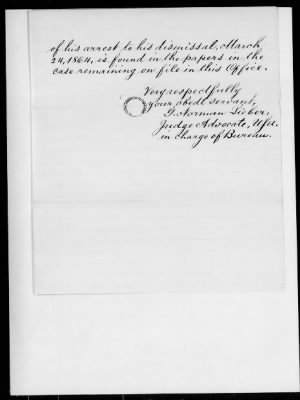 of his arrest to his dismissal, March
24, 1864, is found in the papers in the
case remaining on file in this Office.
Very respectfully
your obedt servant,
G. Norman Lieber,
Judge Advocate, U.S.A.
in charge of Bureau.